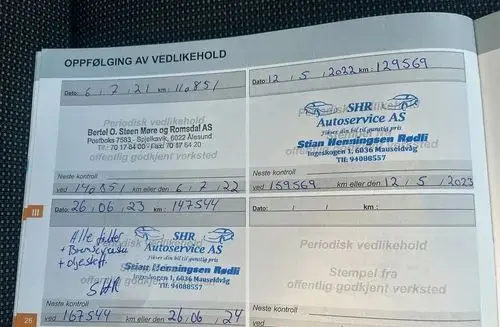 OPPFØLGING AV VEDLIKEHOLD
Dato: 6 / 7 / 21 km: 110851
Periodisk vedlikehold
Bertel O. Steen Møre og Romsdal AS
Postboks 7593 - Spjelkavik, 6022 Ålesund
Tlf. 70 17 64 00 - Faks 70 17 64 20
offentlig godkjent verksted
Neste kontroll
ved 140851 km eller den 6 / 7 / 22
Dato: 12 / 5 / 2022 km: 129569
SHR
Autoservice AS
Fikser din bil til gunstig pris
Stian Henningsen Rødli
Ingeskogen 1, 6036 Mauseidvåg
Tlf: 94088557
Neste kontroll
ved 159569 km eller den 12 / 5 / 2023
III
Dato: 26 / 06 / 23 km: 147544
Alle filter
+ Bremsevæske
+ oljeskift
SHR
SHR
Autoservice AS
Fikser din bil til gunstig pris
Stian Henningsen Rødli
Ingeskogen 1, 6036 Mauseidvåg
Tlf: 94088557
Neste kontroll
ved 167544 km eller den 26 / 06 / 24
Dato: / / km:
Periodisk vedlikehold
Stempel fra
offentlig godkjent verksted
Neste kontroll
ved km eller den / /
26